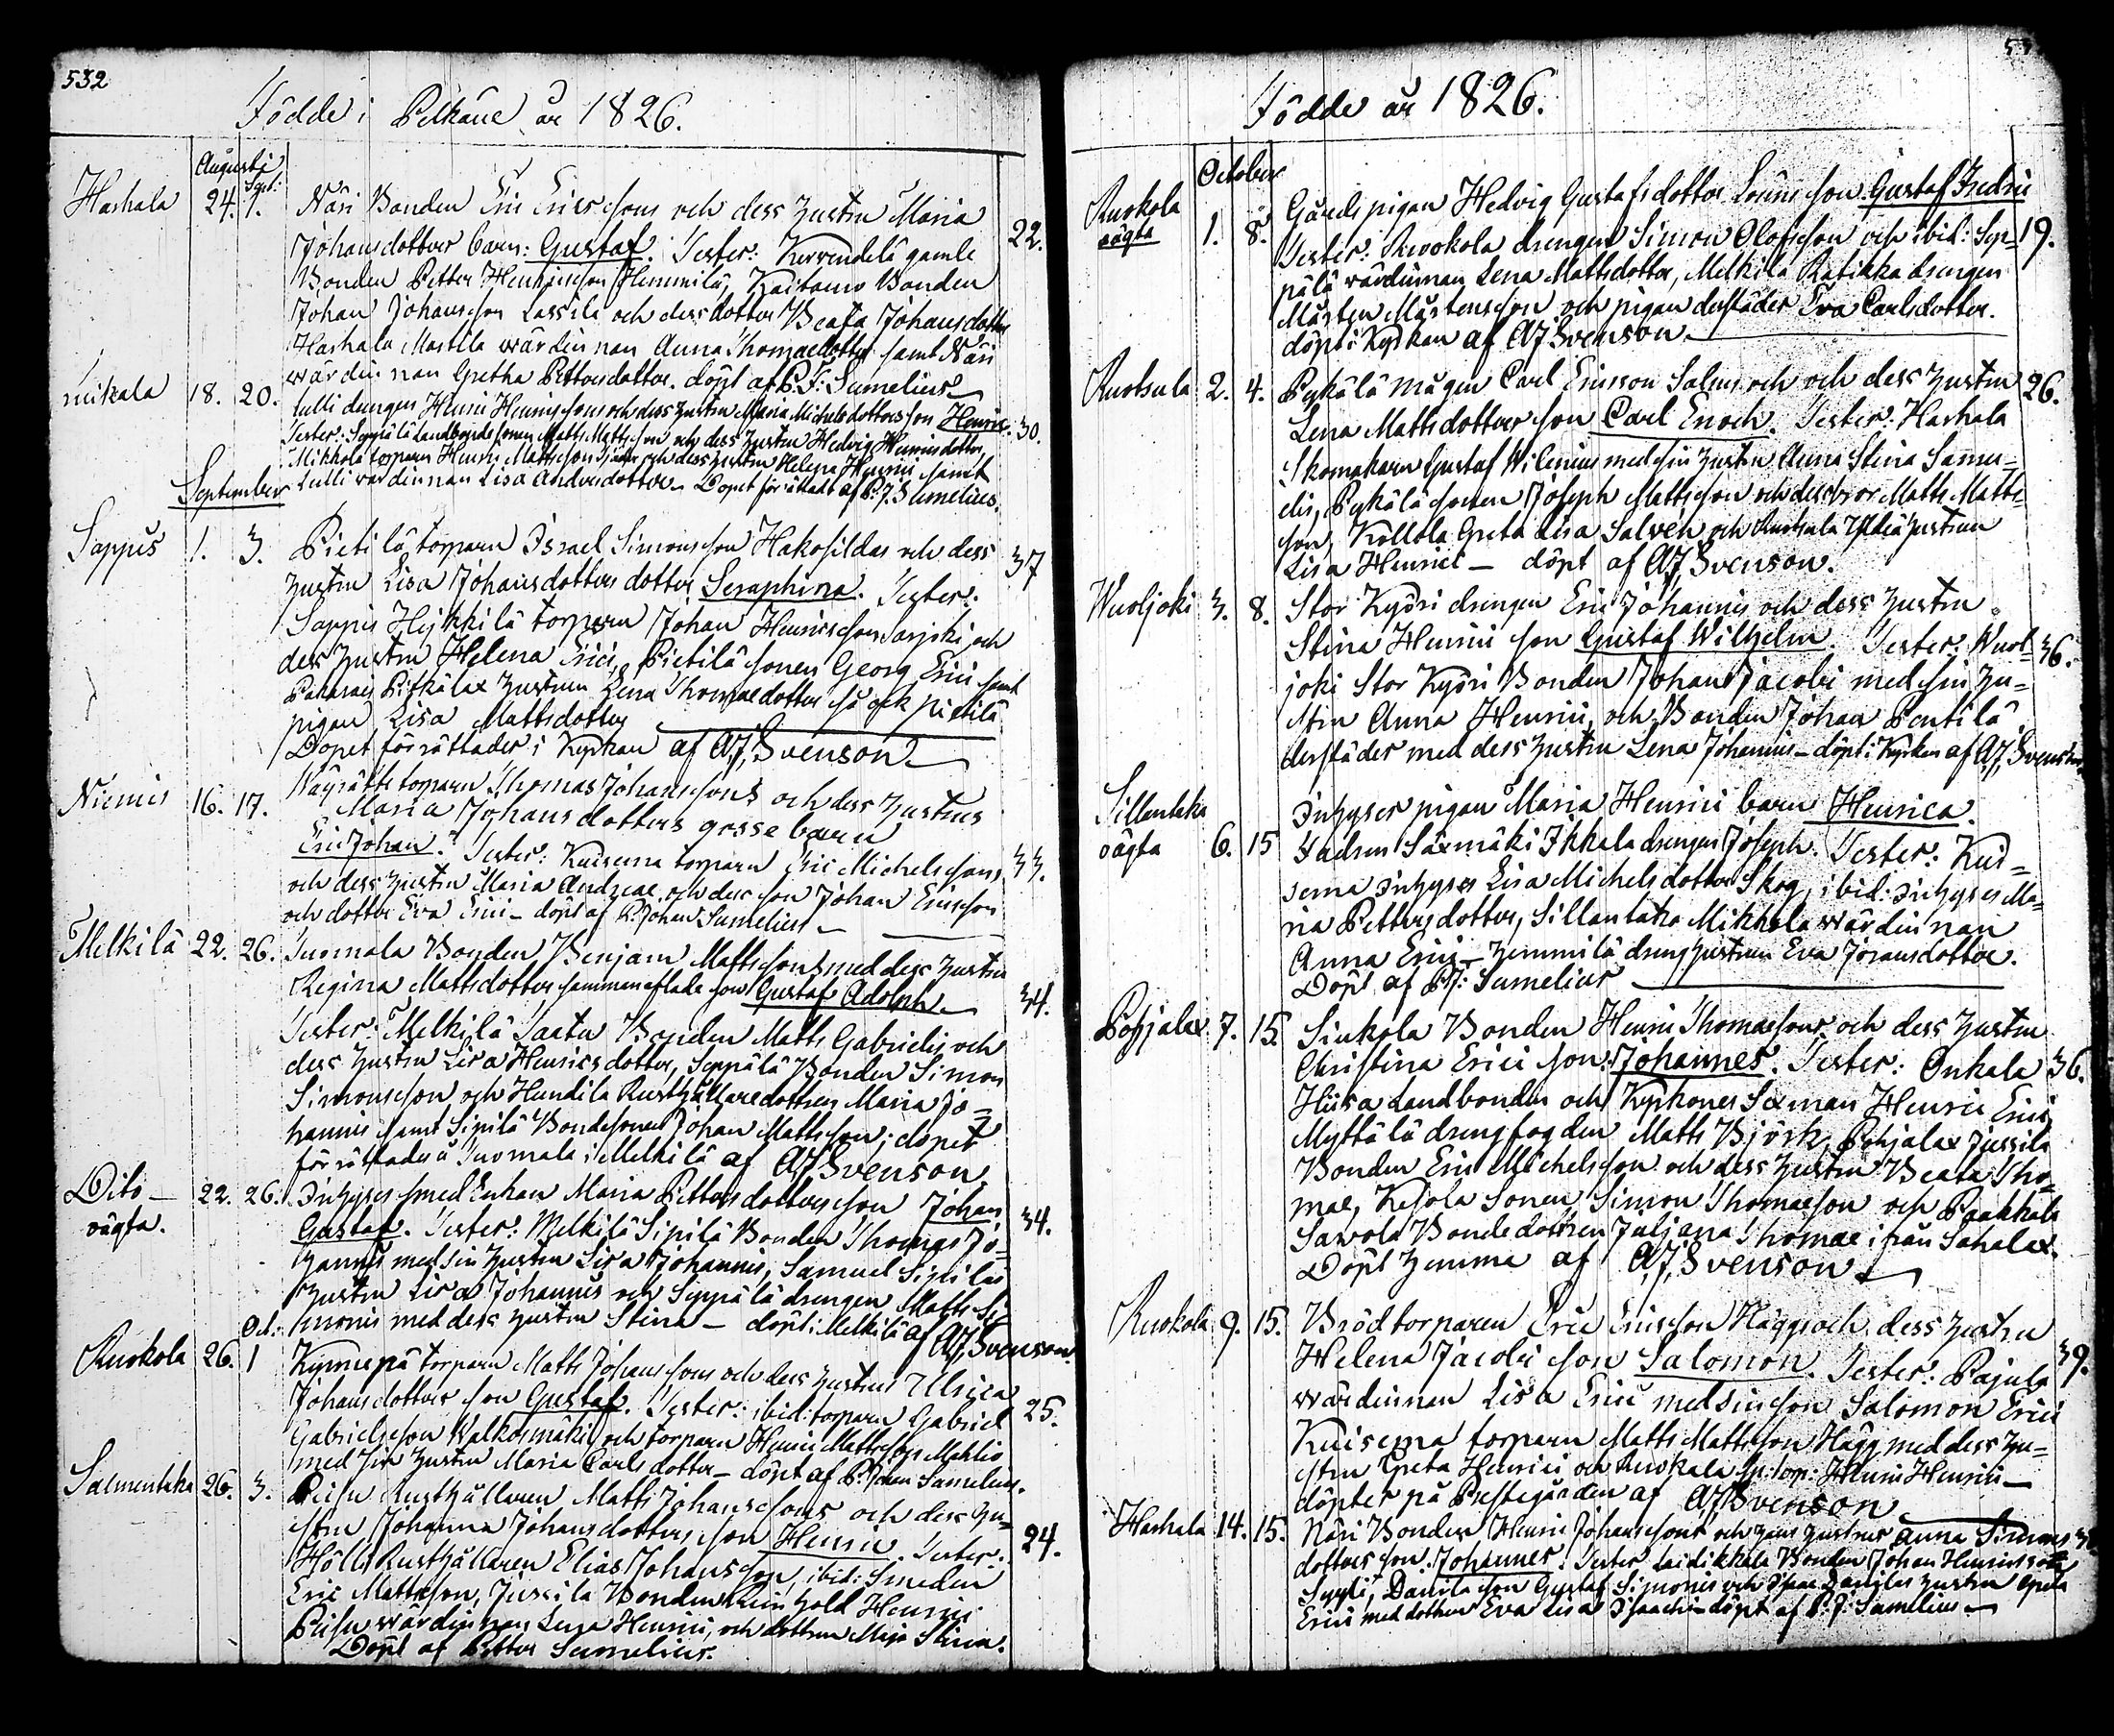 532
Födde i Pelkäne år 1826.
Augusti
Sept:
Harhala 24. 1. Näri Bonden Eric Ericssons och dess hustru Maria
Johansdotters barn: Gustaf. Tester: Kervendelä gamle 22.
Bonden Petter Henricsson Hemmilä, Kaitamo Bonden
Johan Johansson Lassila och dess dotter Beata Johansdotter
Harhala Mattila wärdinnan Anna Thomaedotter samt Näri
wärdinnan Gretha Pettersdotter. döpt af P.J: Sumelius
18. 20. Lulli drengen Henric Henricssons och dess hustru Maria Michelsdotters son Henric. 30.
Tester: Seppälä Landbondesonen Matts Mattsson och dess hustru Hedvig Henricsdotter,
Mikkola torparen Henric Mattsson och dess hustru Helena Henrici samt
Lulli wärdinnan Lisa Andersdotter. Dopet förrättadt af P.J. Sumelius.
September
Sappus 1. 3. Pietilä torparen Israel Simonsson Hakosildas och dess 37
hustru Lisa Johansdotters dotter Seraphina. Tester:
Sappis Heikkilä torparen Johan Henricsson Sarjoki och
dess hustru Helena Erici, Pietilä sonen Georg Erici samt
Pitkälax hustrun Lena Thomaedotter så ock Pietilä
pigan Lisa Mattsdotter
Dopet förrättades i Kyrkan af AJ, Svenson
Niemis 16. 17. torparen Thomas Johanssons och dess hustrus
Maria Johansdotters gosse barn
Eric Johan. Tester: Kuisema torparen Eric Michelsson, 33.
och dess hustru Maria Andreae och dess son Johan Ericsson
och dotter Eva Erici - döpt af P. Johan Sumelius
Melkilä 22. 26. Tuomala Bonden Benjam Mattssons med dess hustru
Regina Mattsdotter sammanaflade son Gustaf Adolph. 34.
Tester: Melkilä Saatu Bonden Matts Gabrielis och
dess hustru Lisa Henricsdotter, Seppälä Bonden Simon
Simonsson och Hundila Rusthållaredottren Maria Jo=
hannis samt Sipilä Bondesonen Johan Mattsson; dopet
förrättades å Tuomala i Melkilä af AJ Svenson.
Dito - 22. 26. Inhyses smed Enkan Maria Pettersdotters son Johan 34.
oägta. Gustaf. Tester: Melkilä Sipilä Bonden Thomas Jo=
hannis med sin hustru Lisa Johannis, Samuel Sipiläs
hustru Lisa Johannis och Seppälä drengen Matts Si=
monis med dess hustru Stina - döpt i Melkilä af AJ, Svenson.
Oct:
Ruokola 26. 1 torparen Matts Johanssons och dess hustrus Ulrica
Johansdotters son Gustaf. Tester: ibid: torparen Gabriel 25.
Gabrielsson Walkosmäki och torparen Henric Mattsson Mahlio
med sin hustru Maria Carlsdotter - döpt af P. Johan Sumelius.
Salmentaka 26. 3. Peisu Rusthållaren Matts Johanssons och dess hu=
stru Johanna Johansdotters son Henric. Tester: 24.
Hölli Rusthållaren Elias Johansson, ibid: Smeden
Eric Mattsson, Jussila Bonden Reinhold Henrici
Peisu wärdinnan Lena Henrici, och dottren Maja Stina.
Döpt af Petter Sumelius.
Födde år 1826.
October
Ruokola 1. 8. Gårds pigan Hedvig Gustafsdotter Lönns son Gustaf Fredric
oägta Tester: Ruokola drengen Simon Olofsson och ibid: Sep= 19.
pälä wärdinnan Lena Mattsdotter, Melkilä Ratikka drengen
Mårten Mårtensson och pigan derstädes Eva Carlsdotter.
döpt i Kyrkan af AJ Svenson
Ruotsula 2. 4. Pykälä mågen Carl Ericsson Salins och och dess hustru 26.
Lena Mattsdotter son Carl Enoch. Tester: Harhala
Skomakaren Gustaf Wilenius med sin hustru Anna Stina Samu=
elis, Pykälä sonen Joseph Mattsson och dess bror Matts Matts=
son, Köllola Greta Lisa Salvén och Ruotsula hustrun
Lisa Henrici - döpt af AJ, Svenson.
Wuoljoki 3. 8. Stor Kyöri drengen Eric Johannis och dess hustru
Stina Henrici son Gustaf Wilhelm. Tester: Wuol= 36.
joki Stor Kyöri Bonden Johan Jacobi med sin hu=
stru Anna Henrici, och Bonden Johan Pentilä
derstädes med dess hustru Lena Johannis - döpt i Kyrkan af AJ, Svenson
Sillantaka Inhyses pigan Maria Henrici barn Henrica.
oägta 6. 15 Fadren Säxmäki Ikkala drengen Joseph. Tester: Kui=
sema Inhyses Lisa Michelsdotter Skog, ibid: Inhyses Ma=
ria Pettersdotter, Sillantaka Mikkola wärdinnan
Anna Erici - Hemmilä dreng hustrun Eva Johansdotter.
Döpt af PJ: Sumelius
Pohjalax 7. 15. Sinkola Bonden Henric Thomaesons och dess hustru
Christina Erici son: Johannes. Tester: Onkala 36.
Hiisa Landbonden och Kyrkones Sexman Henric Erici
Myttälä drengfogden Matts Björk, Pohjalax Jussila
Bonden Eric Michelsson och dess hustru Beata Tho=
mae, Kejola Sonen Simon Thomaeson och Paakkala
Sawola Bonde dottren Juljana Thomae ifrån Sahalax
Döpt hemma af AJ, Svenson
Ruokola 9. 15. Brödtorparen Eric Ericsson Häggs och dess hustru
Helena Jacobi son Salomon. Tester: Pajula 39.
wärdinnan Lisa Erici med sin son Salomon Erici
Kuisema torparen Matts Mattsson Hägg med dess hu=
stru Greta Henrici och Ruokala Henric Henrici -
döptes på Prestegården af AJ Svenson
Harhala 14. 15. Näri Bonden Henric Johanssons och hans hustrus Anna Simons
dotters son: Johannes. Tester Laidikkala Bonden Johan Henricsson
Danila son Gustaf Simonis och Isaac Danilas hustru Greta
Erici med dottren Eva Lisa Isaaci - döpt af P.J. Sumelius